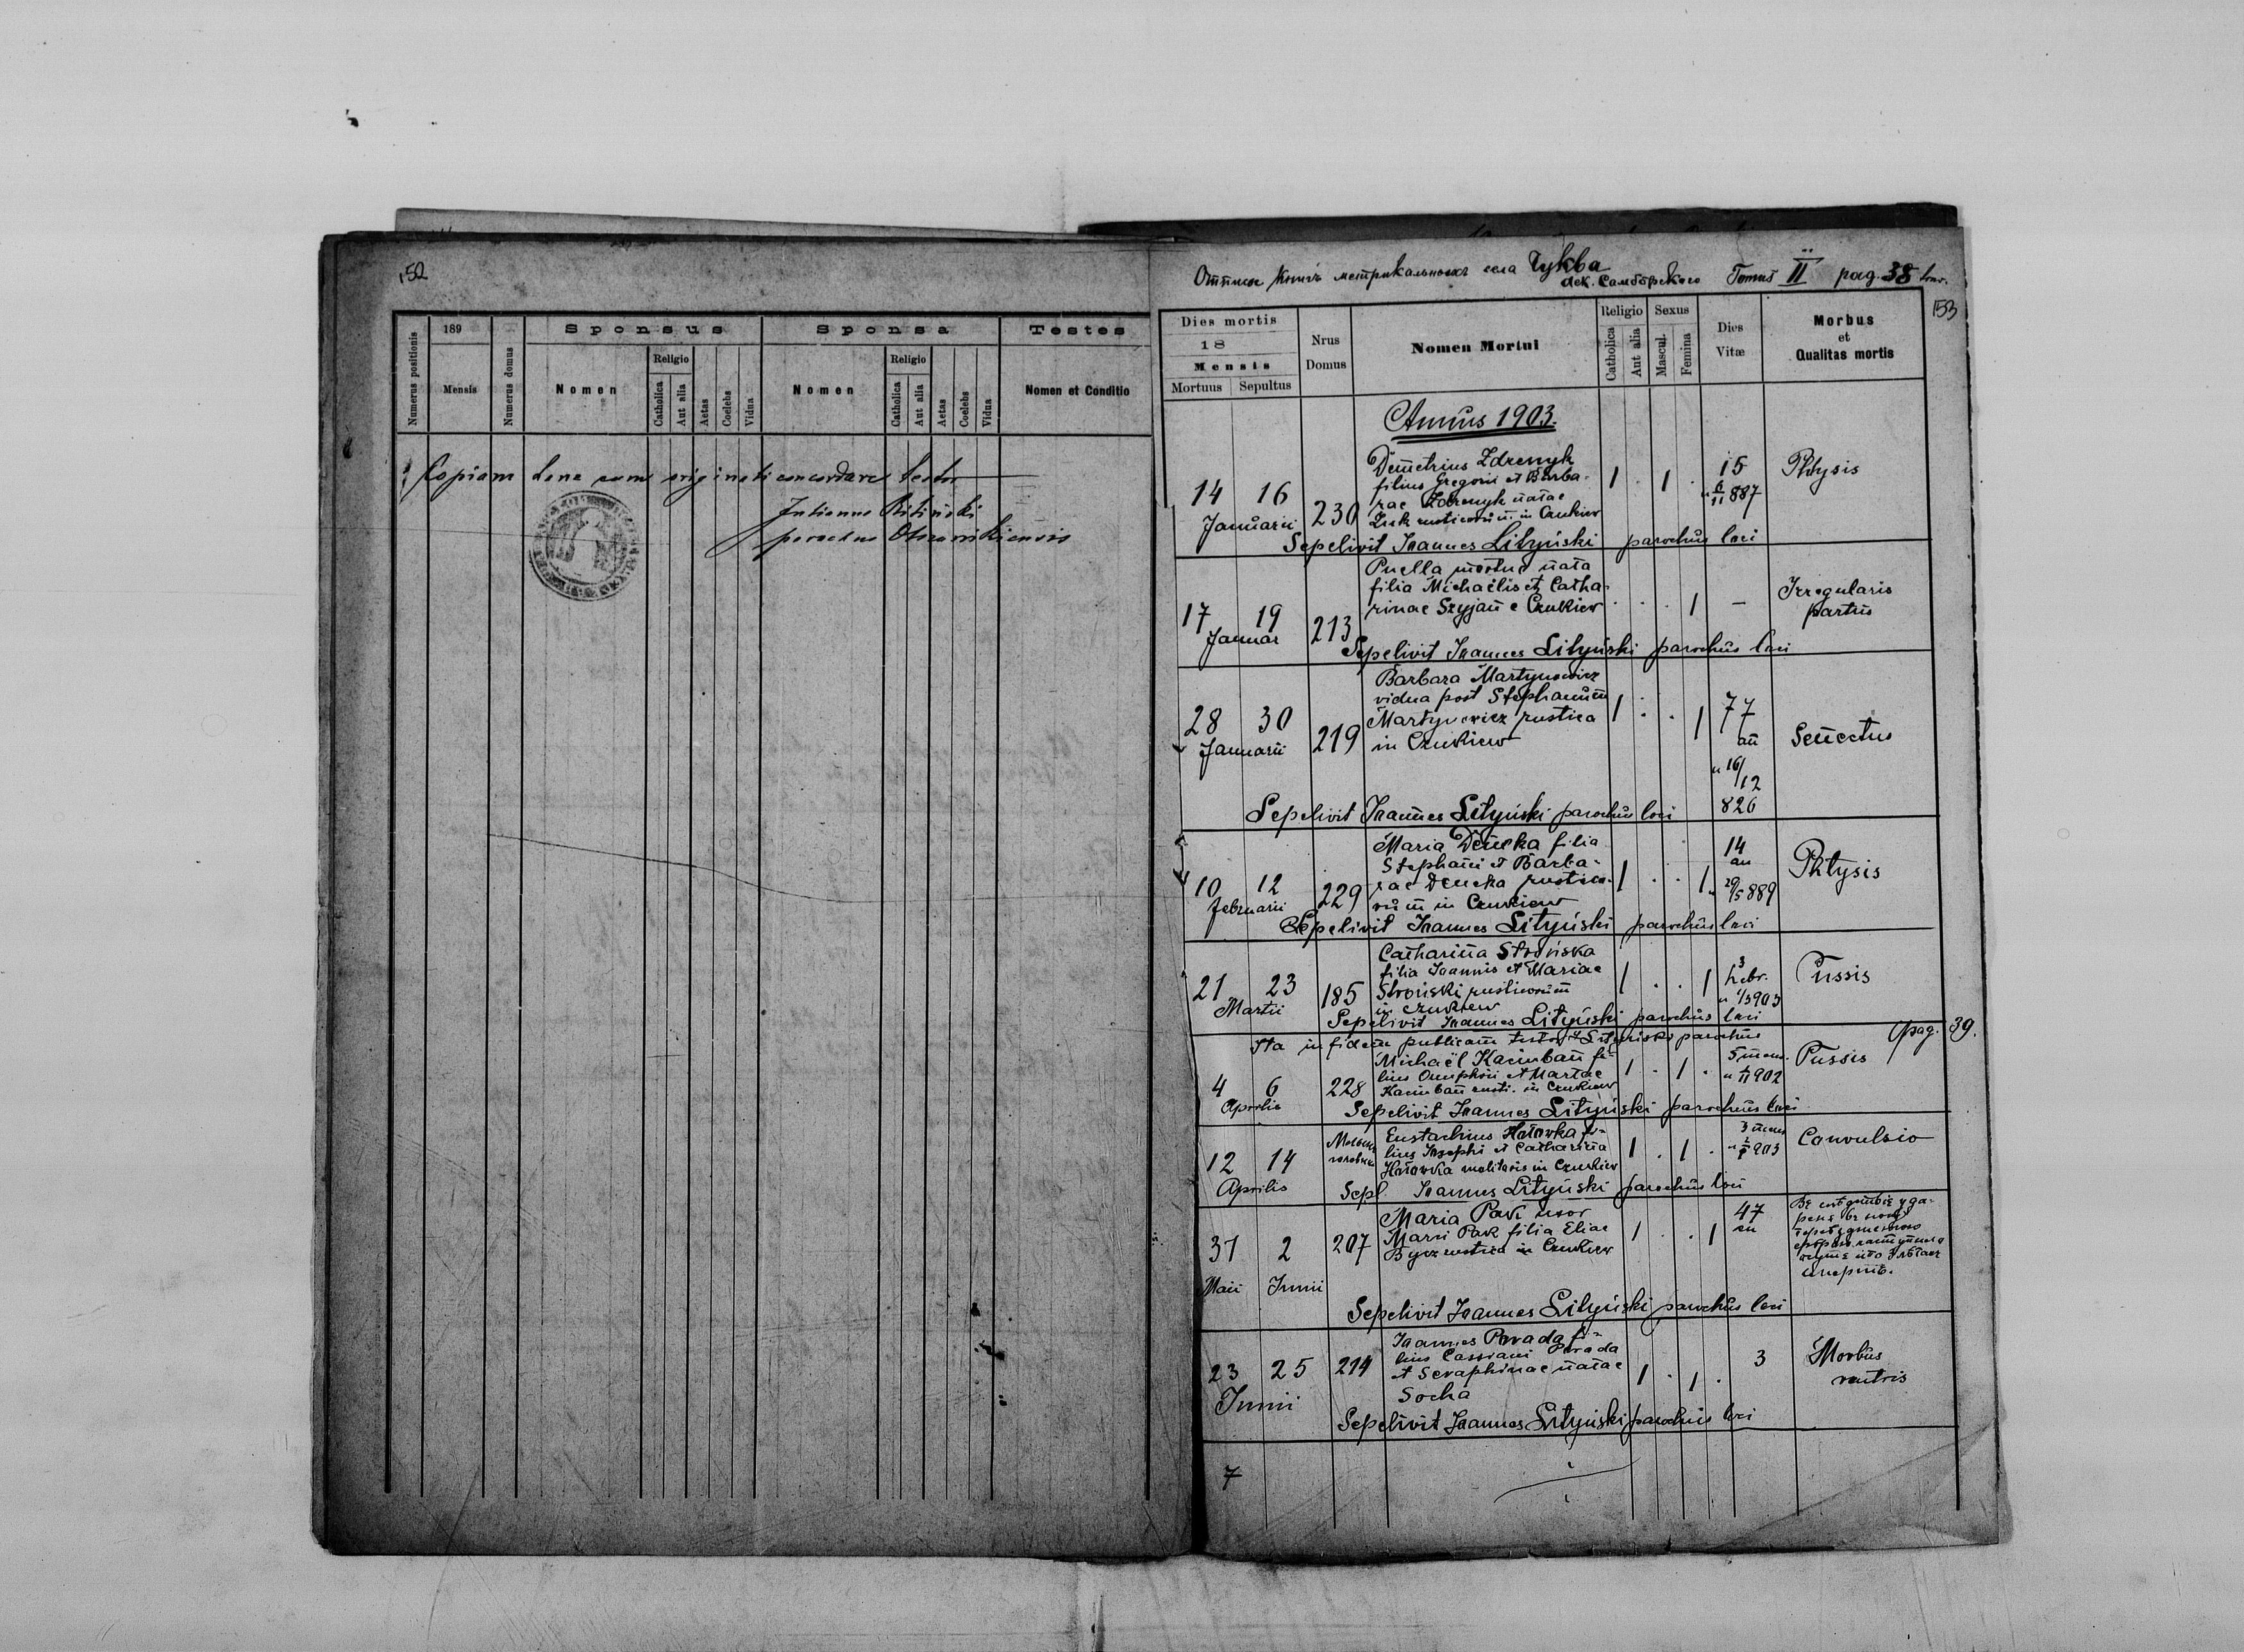 152
Numerus positionis
189
Mensis
Numerus domus
Sponsus
Nomen
Religio
Catholica
Aut alia
Aetas
Coelebs
Vidua
Sponsa
Nomen
Religio
Catholica
Aut alia
Aetas
Coelebs
Vidua
Testes
Nomen et Conditio
Copiam hanc cum originali concordare testor
Julianus
parochus
села Чуква
дек. Самборского Tomus II pag. 38
153
Dies mortis
18
Mensis
Mortuus Sepultus
Nrus
Domus
Nomen Mortui
Religio
Catholica
Aut alia
Sexus
Mascul.
Femina
Dies
Vitæ
Morbus
et
Qualitas mortis
Annus 1903.
14 16
Januarii
230
Demetrius Zdrenyk
filius Gregorii et Barba-
rae Zdrenyk natae
rusticorum in Czukiew
1 . 1 .
15
887
Phtysis
Sepelivit Joannes Lityński parochus loci
17 19
Januar
213
Puella mortue nata
filia Michaëlis et Catha-
rinae Szyjan e Czukiew
. . . 1 —
Irregularis
partus
Sepelivit Joannes Lityński parochus loci
28 30
Januarii
219
Barbara Martynowicz
vidua post Stephanum
Martynowicz rustica
in Czukiew
1 . . 1
77
an
n 16/12
826
Senectus
Sepelivit Joannes Lityński parochus loci
10 12
Februarii
229
Maria Dencka filia
Stephani et Barba-
rae Dencka rustico-
rum in Czukiew
1 . . 1
14
an
29/5 889
Phtysis
Sepelivit Joannes Lityński parochus loci
21 23
Martii
185
Catharina Strońska
filia Joannis et Mariae
Stroński rusticorum
in Czukiew
1 . . 1
3
hebr.
n 1/3 903
Tussis
Sepelivit Joannes Lityński parochus loci
Ita in fidem publicam testor J Lityński parochus
(pag. 39.
4 6
Aprilis
228
Michaël Kacinban fi-
lius Onuphrii et Martae
Kacinban rusti. in Czukiew
1 . 1 .
5 mens.
902
Tussis
Sepelivit Joannes Lityński parochus loci
12 14
Aprilis
Eustachius Hatowka fi-
lius Josephi et Catharina
Hatowka molitoris in Czukiew
1 . 1 .
3 mens
903
Convulsio
Sepl. Joannes Lityński parochus loci
31 2
Maii Junii
207
Maria Pawk uxor
filia Eliae
Bycz rustica in Czukiew
1 . . 1
47
an
Sepelivit Joannes Lityński parochus loci
23 25
Junii
214
Joannes Porada fi-
lius Cassiani Porada
et Seraphinae natae
Socha
1 . 1 .
3
Morbus
ventris
Sepelivit Joannes Lityński parochus loci
7